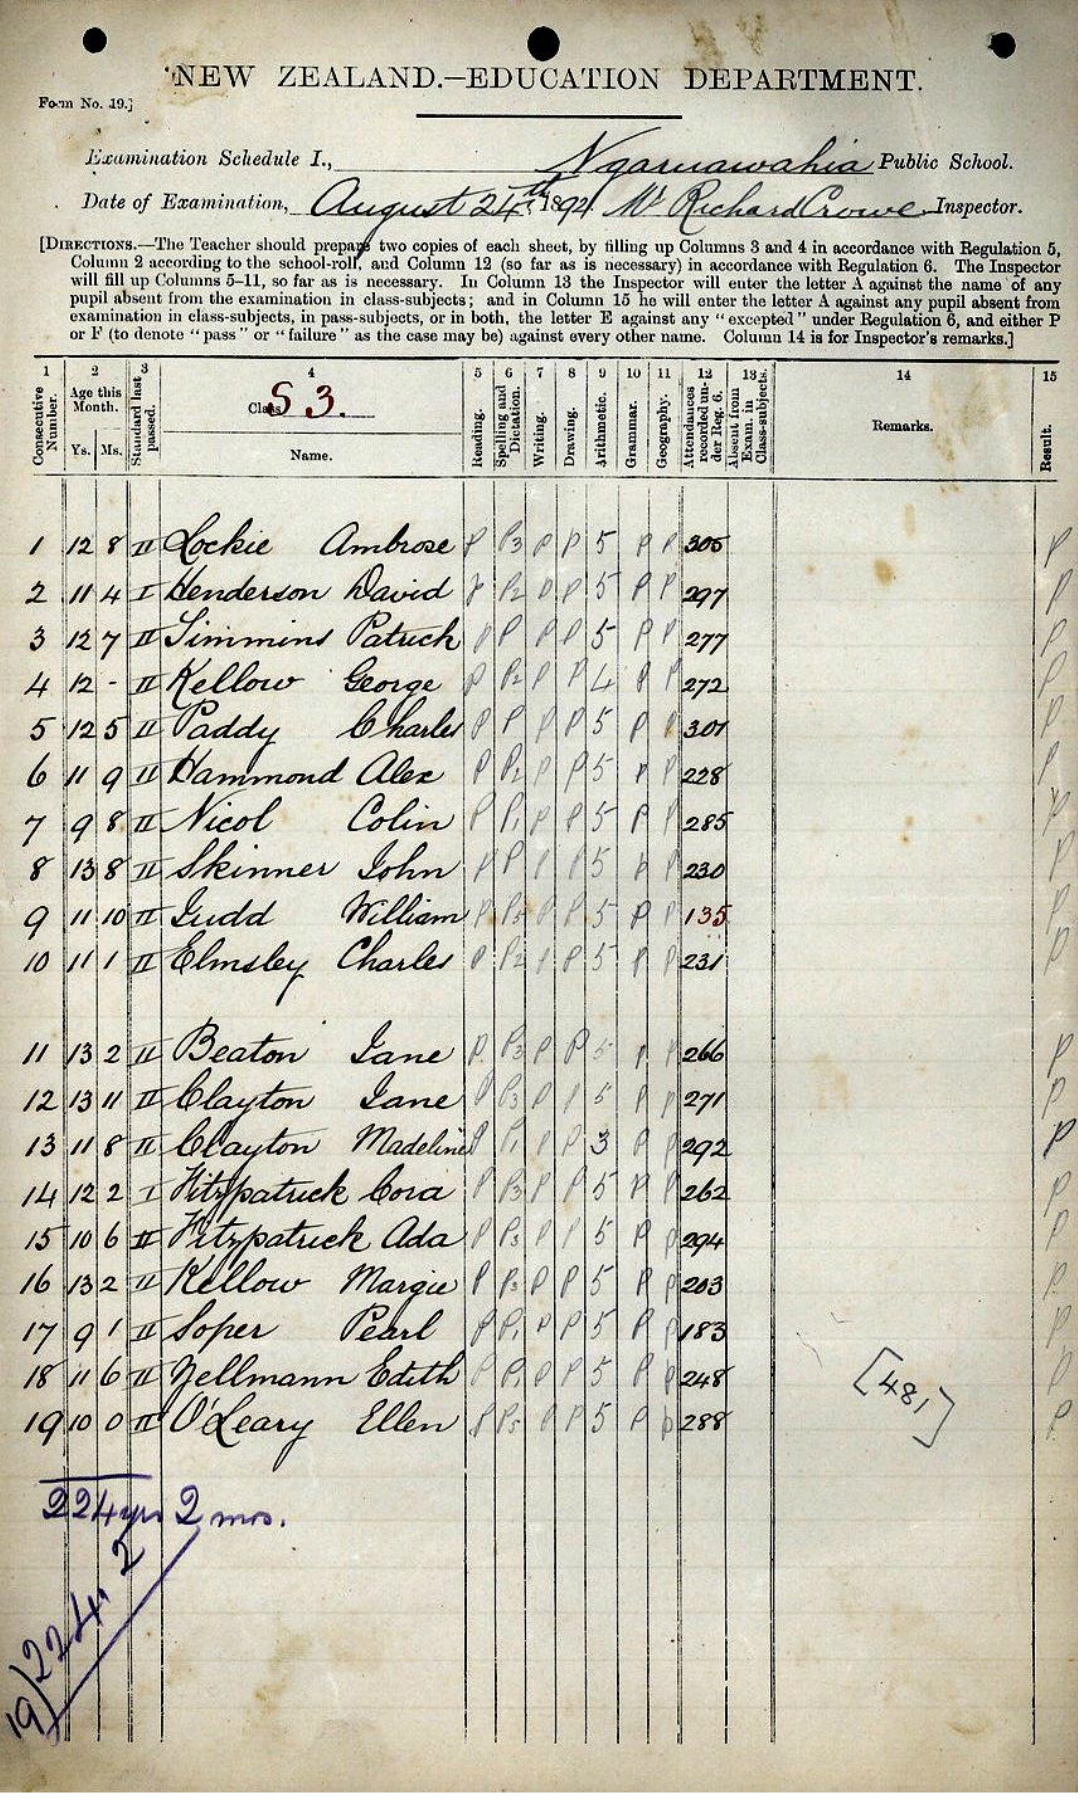 NEW ZEALAND.—EDUCATION DEPARTMENT.
Form No. 19.]
Examination Schedule I., Ngaruawahia Public School.
Date of Examination, August 24th, 1892. Mr Richard Crowe Inspector.
[DIRECTIONS.—The Teacher should prepare two copies of each sheet, by filling up Columns 3 and 4 in accordance with Regulation 5,
Column 2 according to the school-roll, and Column 12 (so far as is necessary) in accordance with Regulation 6. The Inspector
will fill up Columns 5–11, so far as is necessary. In Column 13 the Inspector will enter the letter A against the name of any
pupil absent from the examination in class-subjects; and in Column 15 he will enter the letter A against any pupil absent from
examination in class-subjects, in pass-subjects, or in both, the letter E against any "excepted" under Regulation 6, and either P
or F (to denote "pass" or "failure" as the case may be) against every other name. Column 14 is for Inspector's remarks.]
1 2 3 4 5 6 7 8 9 10 11 12 13 14 15
Consecutive Number.
Age this Month.
Ys. Ms.
Standard last passed.
Class S 3.
Name.
Reading.
Spelling and Dictation.
Writing.
Drawing.
Arithmetic.
Grammar.
Geography.
Attendances recorded under Reg. 6.
Absent from Exam. in Class-subjects.
Remarks.
Result.
1 12 8 II Lockie Ambrose P P3 P P 5 P P 305 P
2 11 4 I Henderson David P P2 P P 5 P P 297 P
3 12 7 II Simmins Patrick P P P P 5 P P 277 P
4 12 - II Kellow George P P2 P P 4 P P 272 P
5 12 5 II Paddy Charles P P P P 5 P P 301 P
6 11 9 II Hammond Alex P P2 P P 5 P P 228 P
7 9 8 II Nicol Colin P P1 P P 5 P P 285 P
8 13 8 II Skinner John P P P P 5 P P 230 P
9 11 10 II Judd William P P P P 5 P P 135 P
10 11 1 II Elmsley Charles P P2 P P 5 P P 231 P
11 13 2 II Beaton Jane P P3 P P 5 P P 266 P
12 13 11 II Clayton Jane P P3 P P 5 P P 271 P
13 11 8 II Clayton Madeline P P1 P P 3 P P 292 P
14 12 2 I Fitzpatrick Cora P P3 P P 5 P P 262 P
15 10 6 II Fitzpatrick Ada P P3 P P 5 P P 294 P
16 13 2 II Kellow Margie P P3 P P 5 P P 203 P
17 9 1 II Soper Pearl P P1 P P 5 P P 183 P
18 11 6 II Zellmann Edith P P1 P P 5 P P 248 P
[481]
19 10 0 II O'Leary Ellen P P5 P P 5 P P 288 P
224 yrs 2 mos.
19)224. 2